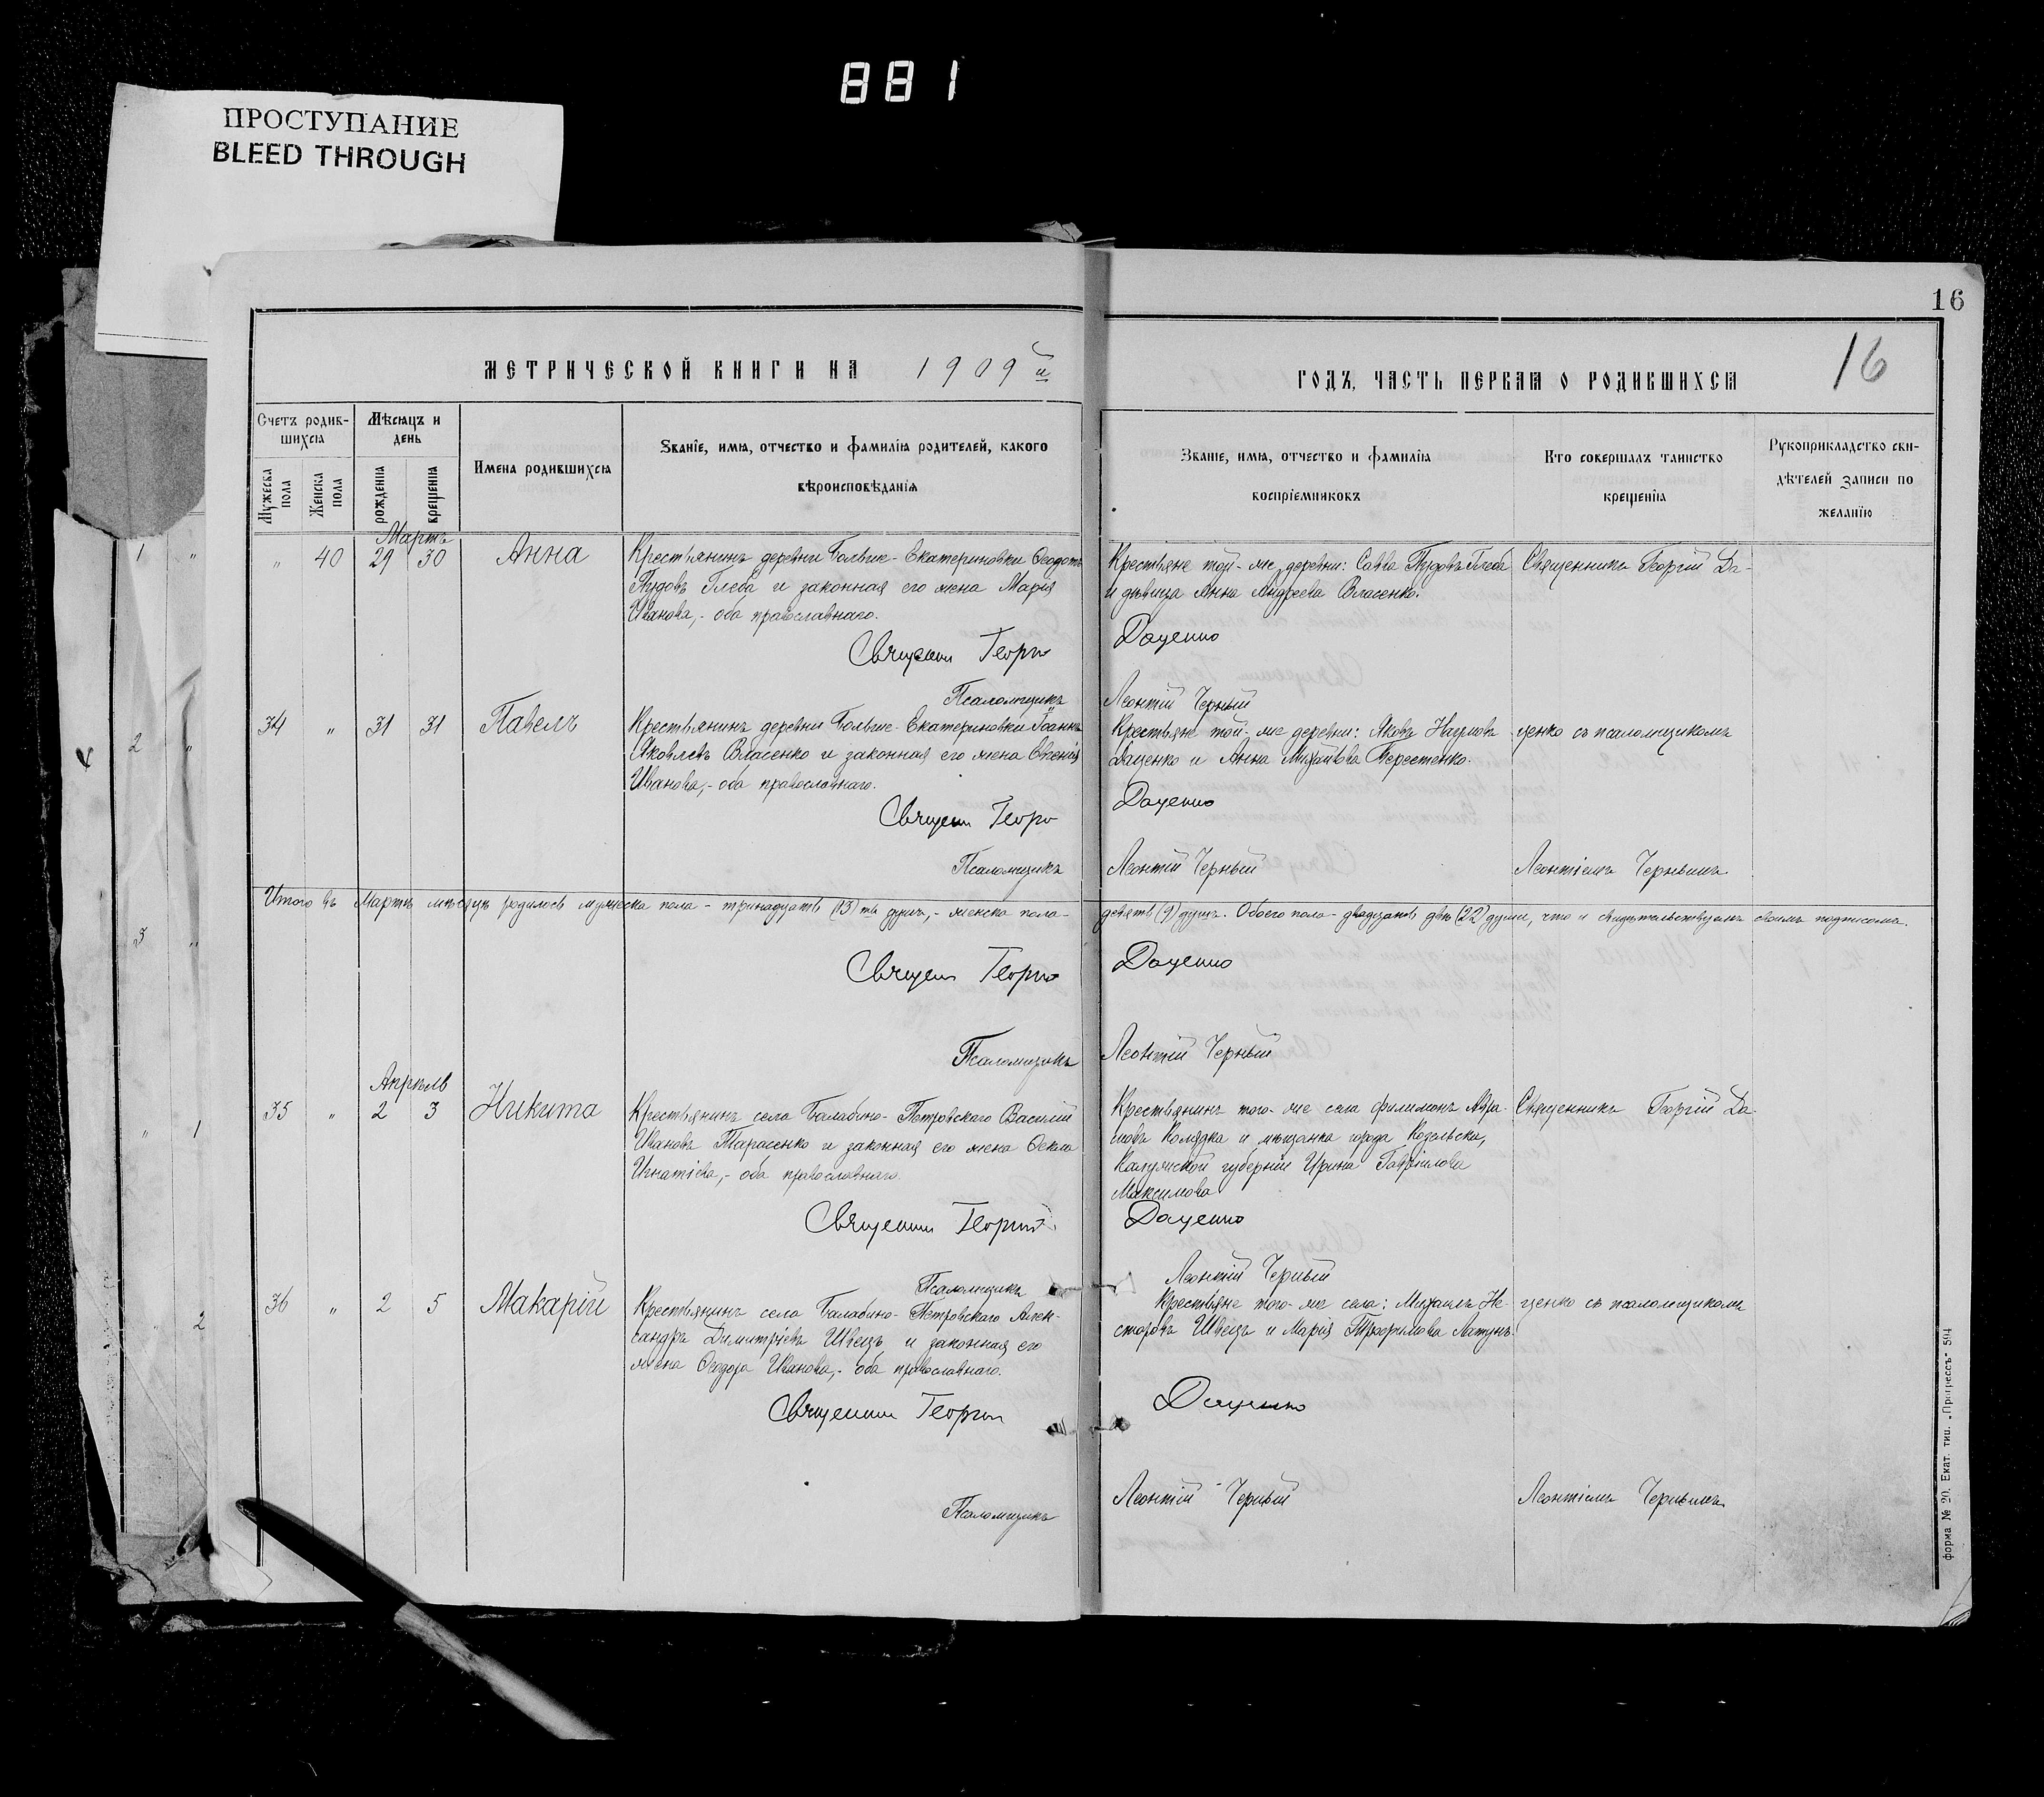 881
ПРОСТУПАНИЕ
BLEED THROUGH
16
МЕТРИЧЕСКОЙ КНИГИ НА 1909й
ГОДЪ, ЧАСТЬ ПЕРВАЯ О РОДИВШИХСЯ
16
Счетъ родив-
шихся
Мужеска пола
Женска пола
Мѣсяцъ и
день
рожденія
крещенія
Имена родившихся
Званіе, имя, отчество и фамилія родителей, какого
вѣроисповѣданія
Званіе, имя, отчество и фамилія
воспріемниковъ
Кто совершалъ таинство
крещенія
Рукоприкладство сви-
дѣтелей записи по
желанію
Мартъ
" 40 29 30 Анна
Крестьянинъ деревни Больше-Екатериновки Ѳеодотъ
Пудовъ Глеба и законная его жена Марія
Иванова,- оба православнаго.
Крестьяне той-же деревни: Савва Пудовъ Глеба
и дѣвица Анна Андреева Власенко.
Священникъ Георгій Да-
Священни Георгій
Даценко
Псаломщикъ
Леонтій Черный
34 " 31 31 Павелъ
Крестьянинъ деревни Больше-Екатериновки Іоаннъ
Яковлевъ Власенко и законная его жена Евгенія
Иванова,- оба православнаго.
Крестьяне той-же деревни: Яковъ Наумовъ
Даценко и Анна Михаилова Перестенко.
ценко съ псаломщикомъ
Священ Георгій
Даценко
Псаломщикъ
Леонтій Черный
Леонтіемъ Чернымъ
Итого въ Мартѣ мѣсяцѣ родилось мужеска пола - тринадцать (13)ть душъ,- женска пола-
девять (9) душъ. Обоего пола - двадцать двѣ (22) души, что и свидѣтельствуемъ своимъ подписомъ.
Священ Георгій
Даценко
Псаломщикъ
Леонтій Черный
Апрѣль
35 " 2 3 Никита
Крестьянинъ села Балабино-Петровскаго Василій
Ивановъ Тарасенко и законная его жена Ѳекла
Игнатіева,- оба православнаго.
Крестьянинъ того-же села Филимонъ Авра-
мовъ Колядка и мѣщанка города Козельска,
Калужской губерніи Ирина Гавріилова
Максимова
Священникъ Георгій Да-
Священни Георгій
Даценко
Псаломщикъ
Леонтій Черный
36 " 2 5 Макарій
Крестьянинъ села Балабино-Петровскаго Алек-
сандръ Димитріевъ Швецъ и законная его
жена Ѳеодора Иванова,- оба православнаго.
Крестьяне того-же села: Михаилъ Не-
сторовъ Швецъ и Марія Трофимова Латунъ.
ценко съ псаломщикомъ
Священни Георгій
Даценко
Псаломщикъ
Леонтій Черный
Леонтіемъ Чернымъ
форма № 20. Екат. тип. „Прогрессъ“ 594
1 "
2 "
3 "
" 1
" 2